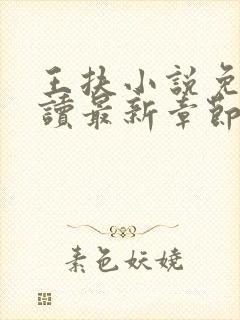 王抉小說免
讀最新章節
素色妖嬈